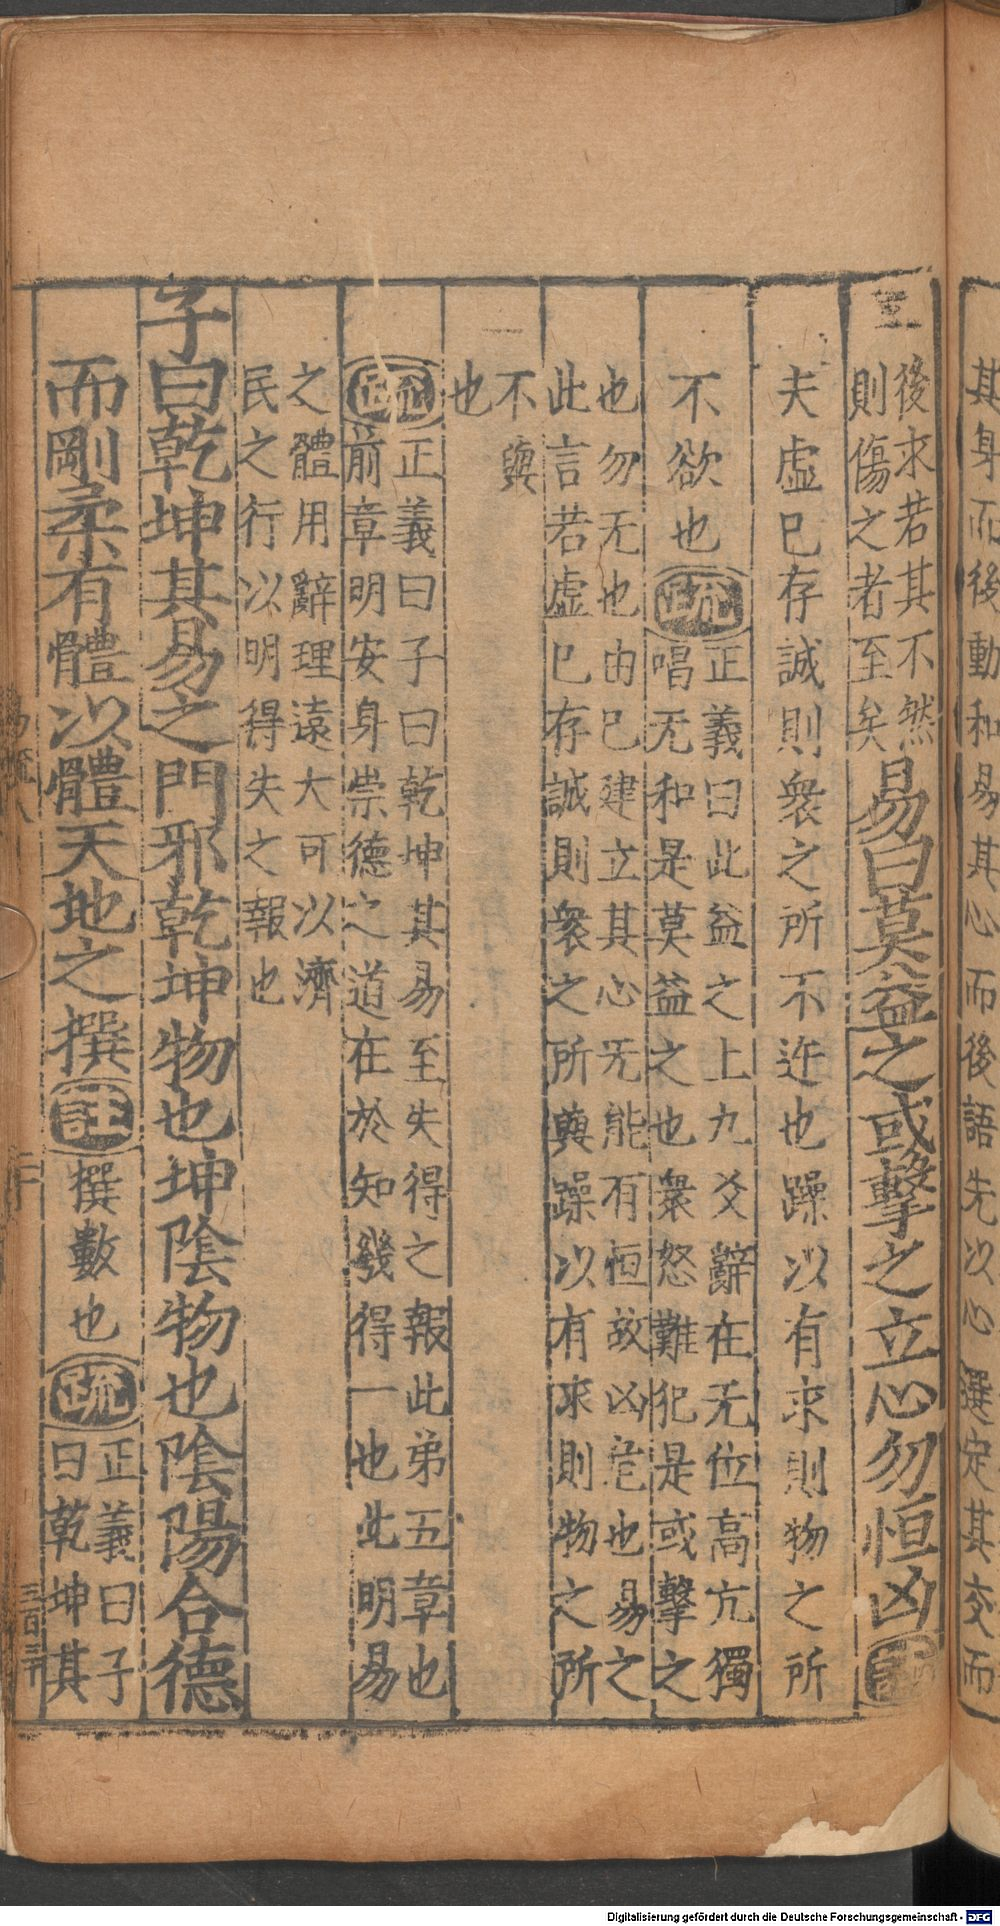 其身而後動和易其心而後語先以心選定其交而
後求若其不然
則傷之者至矣
易曰莫益之或擊之立心勿恒凶註
夫虛已存誠則衆之所不迕也躁以有求則物之所
不欲也疏
正義曰此益之上九爻辭在无位高亢獨
唱无和是莫益之也衆怒難犯是或擊之
也勿无也由已建立其心无能有恒故凶危也易之
此言若虛已存誠則衆之所與躁以有求則物之所
不與
也
疏
正義曰子曰乾坤其易至失得之報此弟五章也
前章明安身崇德之道在於知幾得一也此明易
之體用辭理遠大可以濟
民之行以明得失之報也
子曰乾坤其易之門邪乾坤物也坤陰物也陰陽合德
而剛柔有體以體天地之撰註
撰數也疏
正義曰子
曰乾坤其
易疏八
三百三十
Digitalisierung gefördert durch die Deutsche Forschungsgemeinschaft - DFG